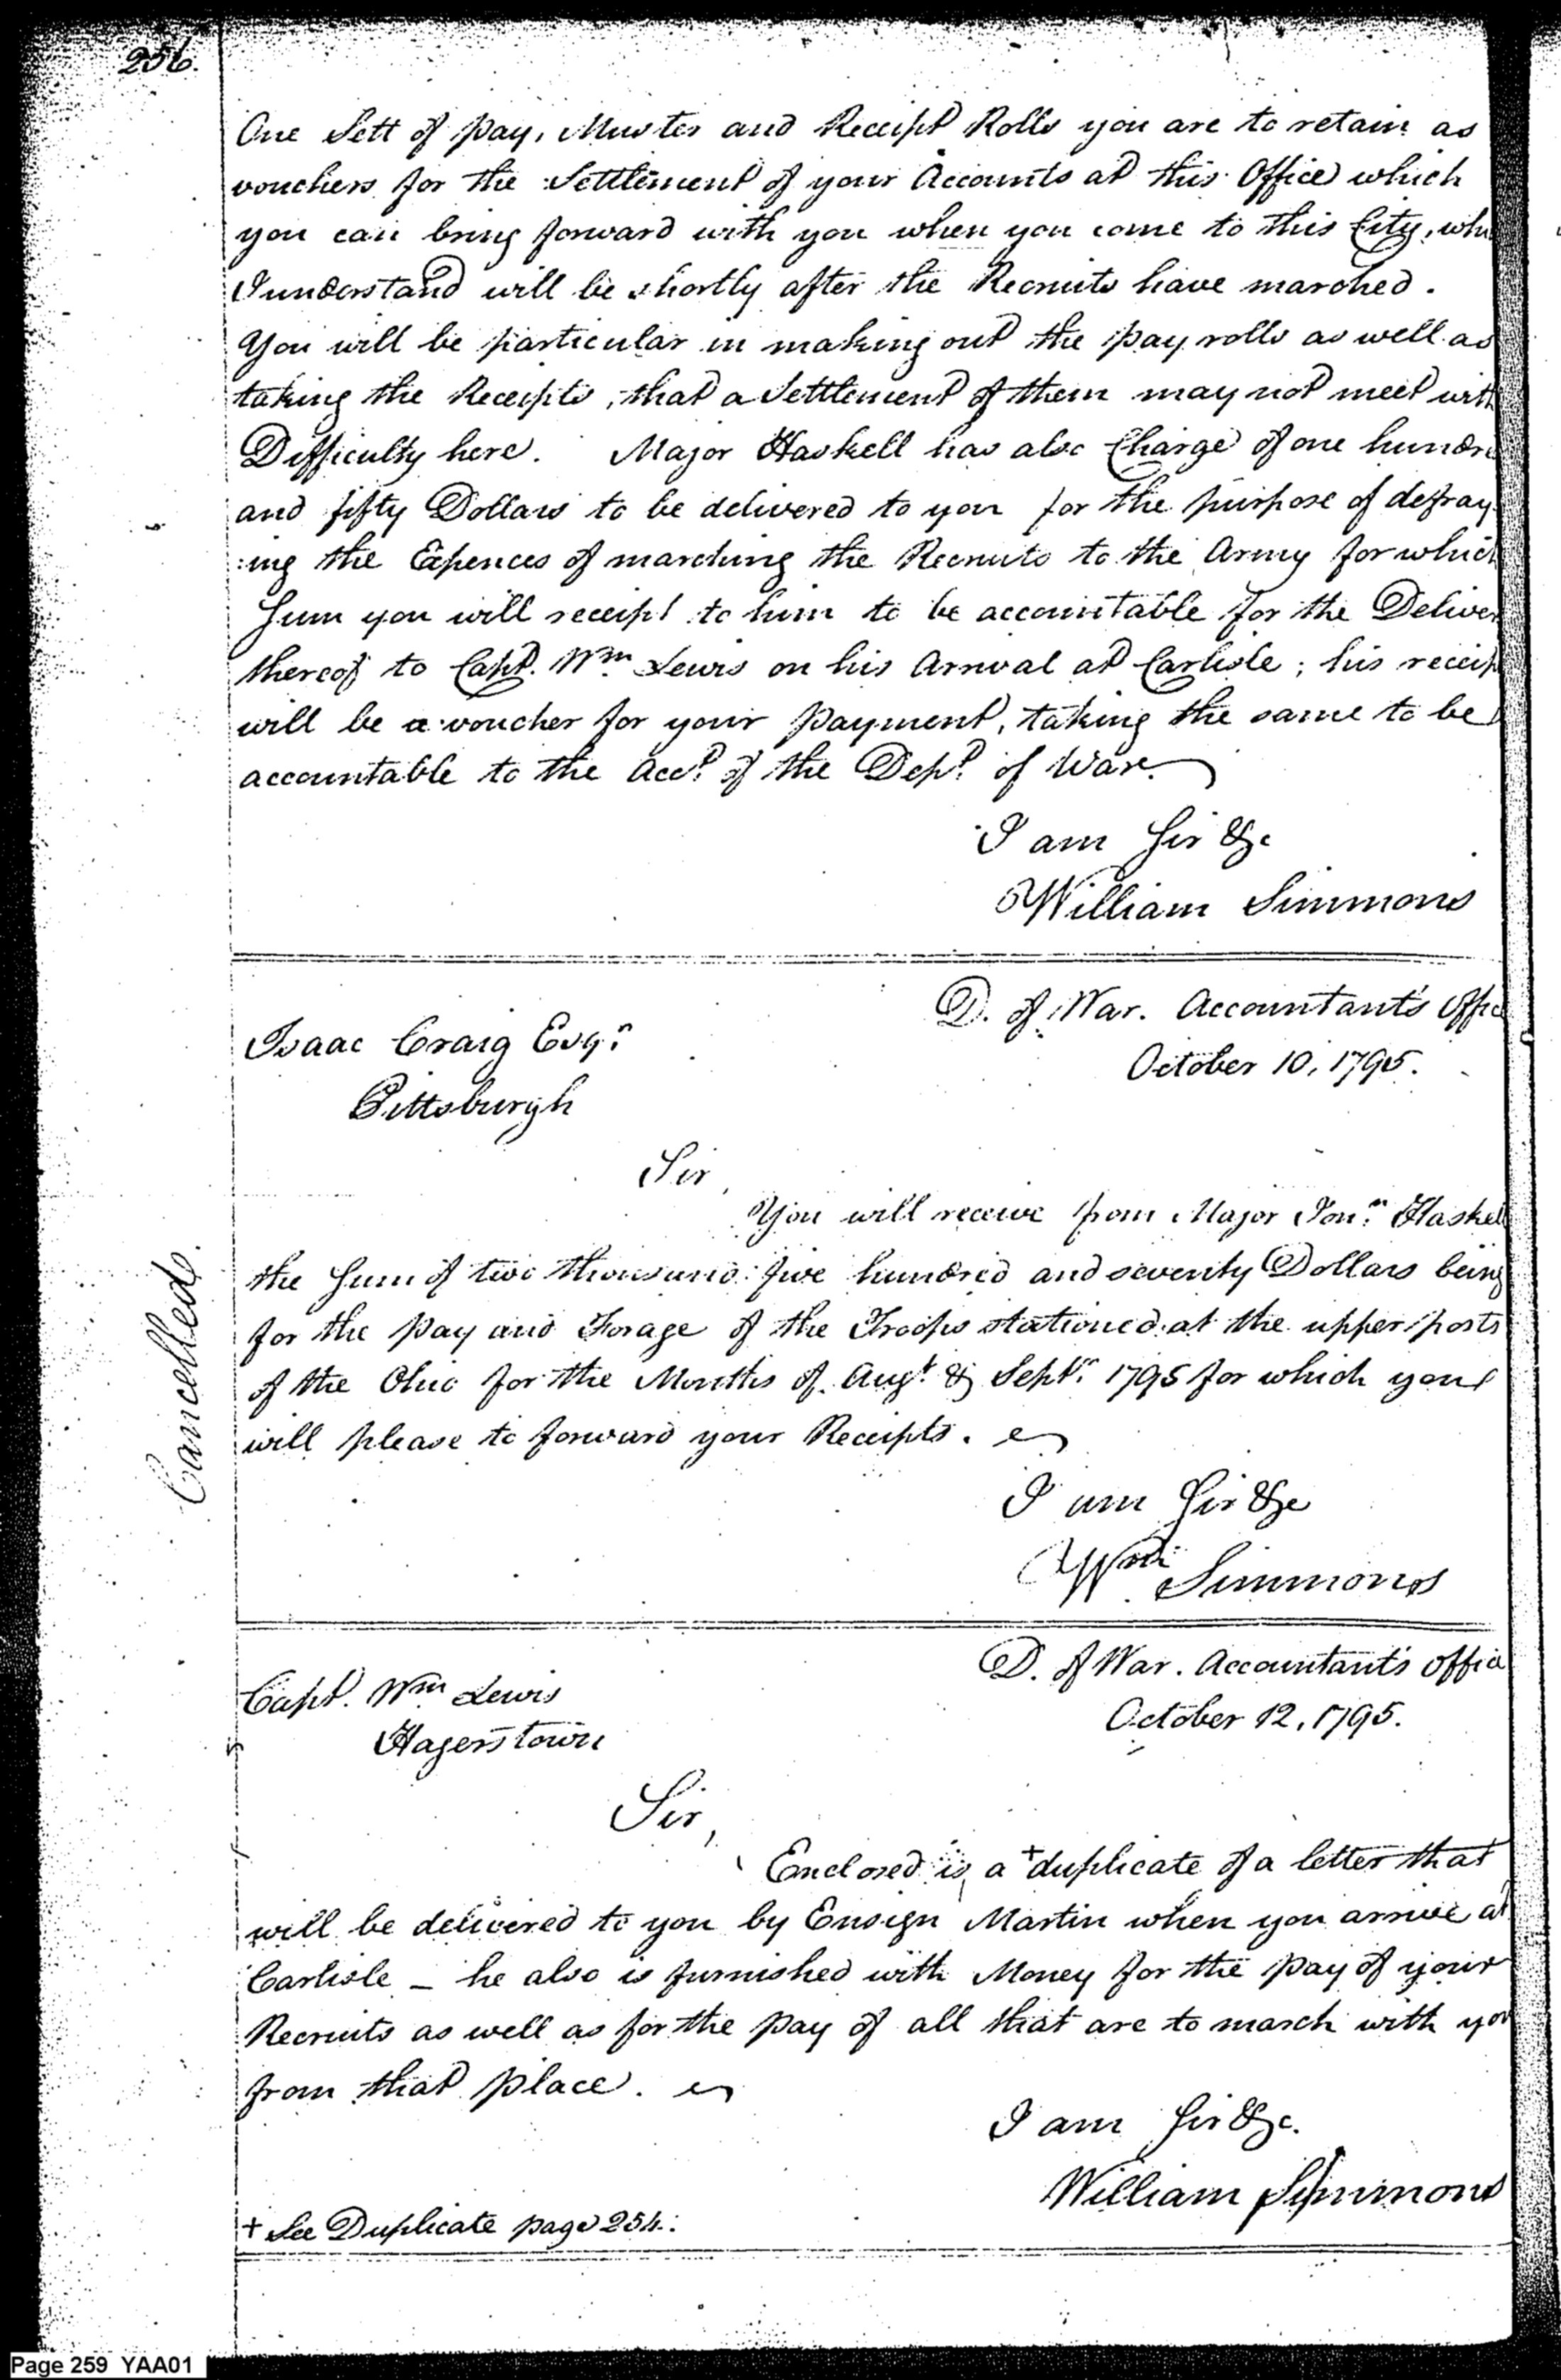 256.
One Sett of pay, Muster and Receipt Rolls you are to retain as
vouchers for the Settlement of your Accounts at this Office which
you can bring forward with you when you come to this City, whi
I understand will be shortly after the Recruits have marched.
You will be particular in making out the pay rolls as well as
taking the Receipts, that a Settlement of them may not meet with
Difficulty here. Major Haskell has also Charge of one hundre
and fifty Dollars to be delivered to you for the purpose of defray
:ing the Expences of marching the Recruits to the Army for which
Sum you will receipt to him to be accountable for the Deliver
thereof to Capt. Wm Lewis on his Arrival at Carlisle; his receip
will be a voucher for your payment, taking the same to be
accountable to the Acct. of the Dept. of War.
I am Sir &c
William Simmons
D. of War. Accountant's Offic
Isaac Craig Esqr.
October 10, 1795.
Pittsburgh
Sir,
You will receive from Major Jonn. Haskell
the Sum of two thousand five hundred and seventy Dollars being
for the pay and Forage of the Troops stationed at the upper posts
of the Ohio for the Months of Augt. & Septr. 1795 for which you
will please to forward your Receipts.
Cancelled.
I am Sir &c
Wm. Simmons
D. of War. Accountant's offic
Capt. Wm Lewis
October 12, 1795.
Hagerstown
Sir,
Enclosed is a + duplicate of a letter that
will be delivered to you by Ensign Martin when you arrive at
Carlisle _ he also is furnished with Money for the pay of your
Recruits as well as for the pay of all that are to march with you
from that place.
I am Sir &c.
William Simmons
+ See Duplicate page 254.
Page 259 YAA01